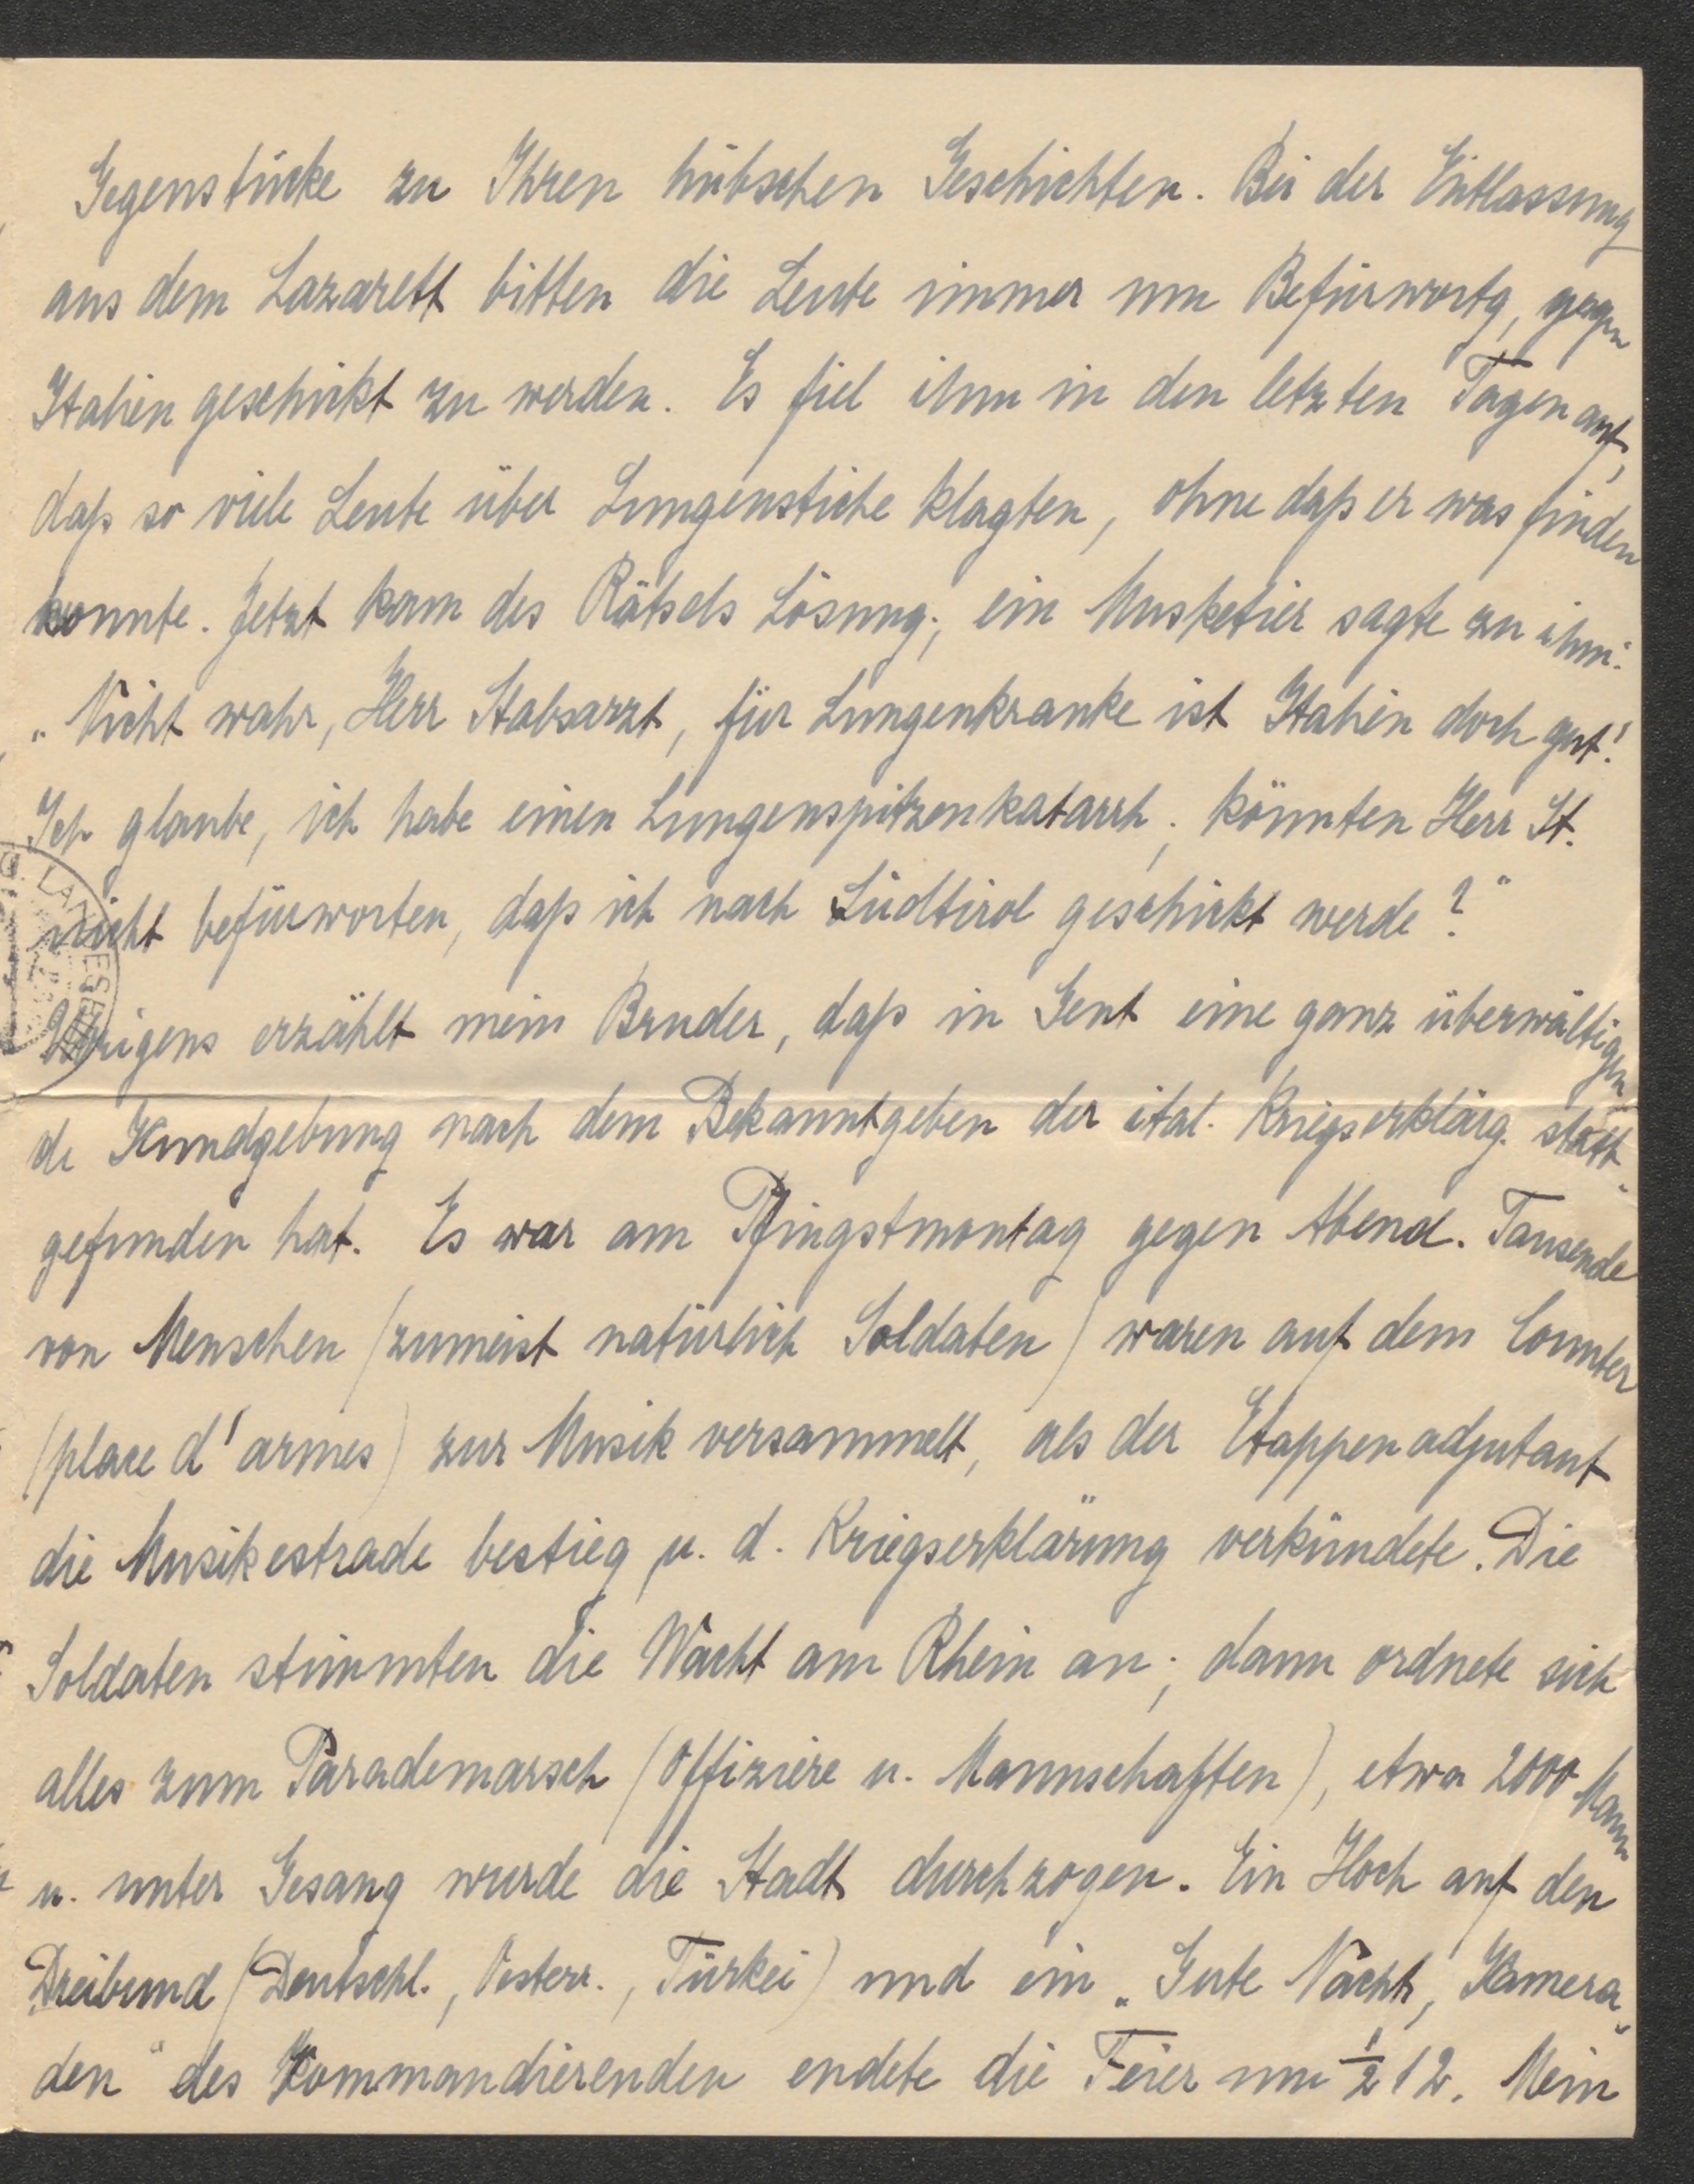 Gegenstücke zu Ihren hübschen Geschichten. Bei der Entlassung
aus dem Lazarett bitten die Leute immer um Befürwortg, gegen
Italien geschickt zu werden. Es fiel ihm in den letzten Tagen auf,
daß so viele Leute über Lungenstiche klagten, ohne daß er was finden
konnte. Jetzt kam des Rätsels Lösung; ein Musketier sagte zu ihm:
„Nicht wahr, Herr Stabsarzt, für Lungenkranke ist Italien doch gut!
Ich glaube, ich habe einen Lungenspitzenkatarrh; könnten Herr St.
nicht befürworten, daß ich nach Südtirol geschickt werde?"
Übrigens erzählt mein Bruder, daß in Gent eine ganz überwältigen-
de Kundgebung nach dem Bekanntgeben der ital. Kriegserklärg. statt-
gefunden hat. Es war am Pfingstmontag gegen Abend. Tausende
von Menschen (zumeist natürlich Soldaten) waren auf dem Counter
(place d'armes) zur Musik versammelt, als der Etappenadjutant
die Musikestrade bestieg u. d. Kriegserklärung verkündete. Die
Soldaten stimmten die Wacht am Rhein an; dann ordnete sich
alles zum Parademarsch (Offiziere u. Mannschaften), etwa 2000 Mann
u. unter Gesang wurde die Stadt durchzogen. Ein Hoch auf den
Dreibund (Deutschl., Österr., Türkei) und ein „Gute Nacht, Kamera-
den" des Kommandierenden endete die Feier um ½12. Mein